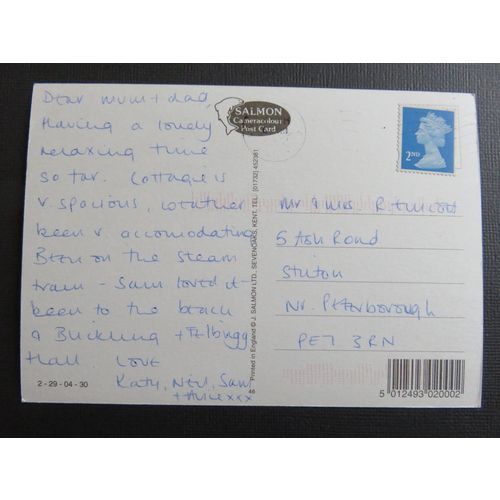 Dear mum + dad,
Having a lovely
relaxing time
so far. Cottage is
v. spacious, weather
been v. accomodating
Been on the steam
train - Sam loved it -
been to the beach
& Blickling + Felbrigg
Hall Love
Katy, Neil, Sam
+ Alice xxx
2-29-04-30
SALMON
Cameracolour
Post Card
Printed in England © J. SALMON LTD., SEVENOAKS, KENT. TEL: (01732) 452381
46
2ND
Mr & Mrs R
5 Ash Road
Stilton
Nr. Peterborough
PE7 3RN
5 012493 020002